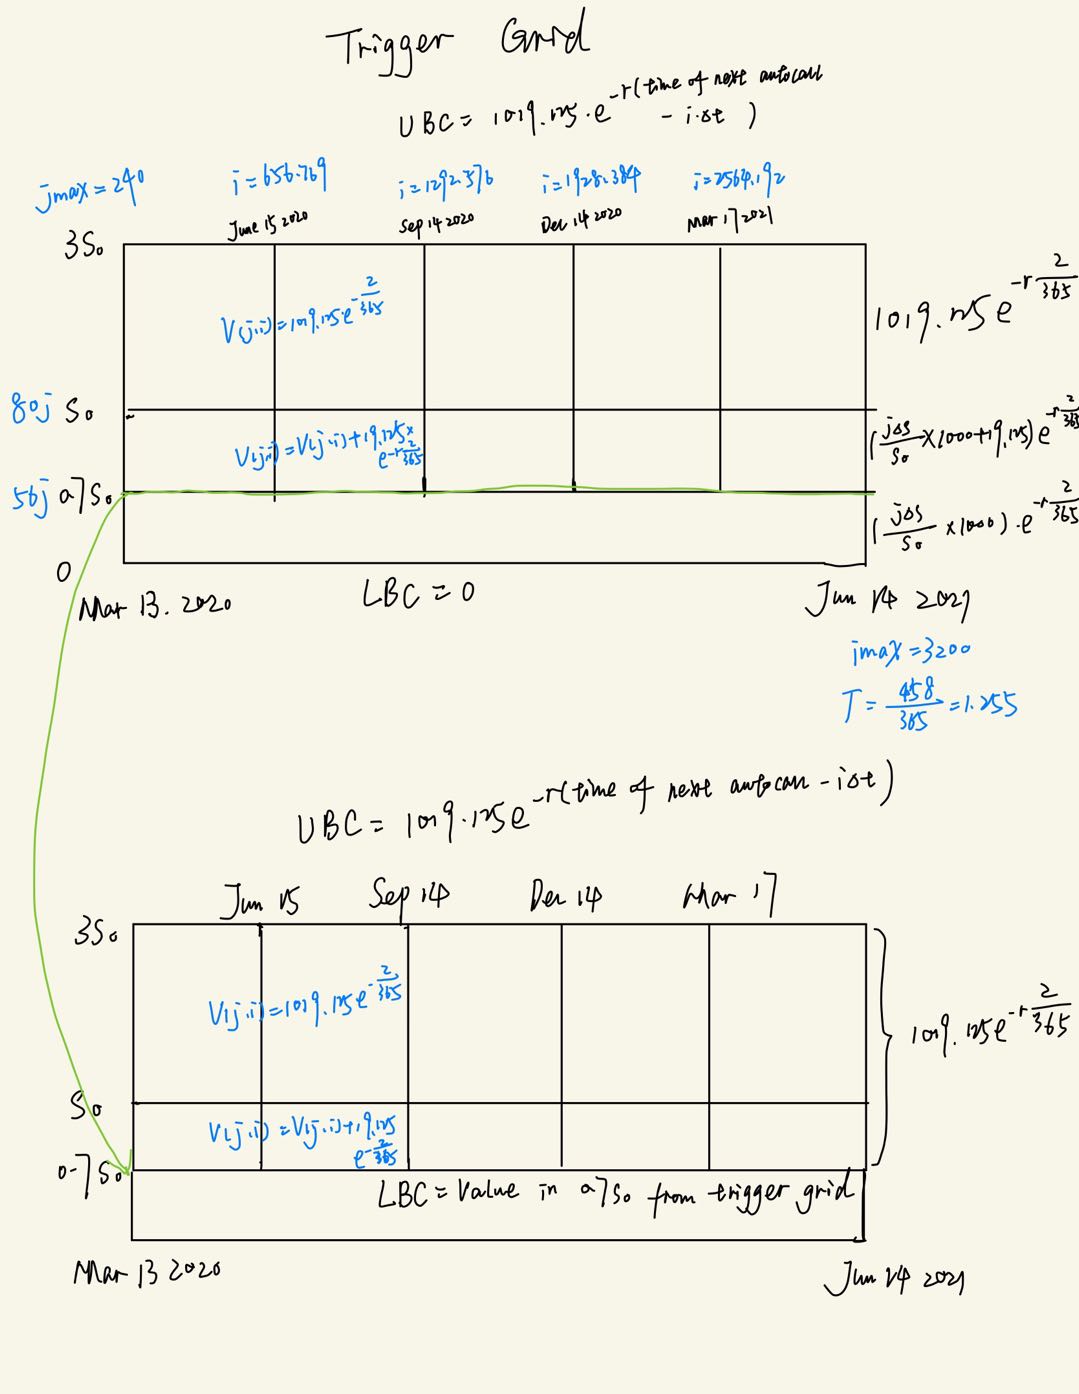 Trigger Grid
UBC = 1019.125 · e^{-r(time of next autocall - i·Δt)}
jmax = 240
i = 656.769
i = 1292.576
i = 1928.384
i = 2564.192
June 15 2020
Sep 14 2020
Dec 14 2020
Mar 17 2021
3S₀
V(j,i) = 1019.125 e^{-2/365}
1019.125 e^{-r 2/365}
80j S₀
V(j,i) = V(j,i) + 19.125 × e^{-r 2/365}
(jΔS/S₀ × 1000 + 19.125) e^{-r 2/365}
56j 0.7S₀
(jΔS/S₀ × 1000) · e^{-r 2/365}
0
Mar 13. 2020
LBC = 0
Jun 14 2021
imax = 3200
T = 458/365 = 1.255
UBC = 1019.125 e^{-r(time of next autocall - iΔt)}
Jun 15
Sep 14
Dec 14
Mar 17
3S₀
V(j,i) = 1019.125 e^{-2/365}
1019.125 e^{-r 2/365}
S₀
V(j,i) = V(j,i) + 19.125 e^{-2/365}
0.7S₀
LBC = Value in 0.7S₀ from trigger grid
Mar 13 2020
Jun 14 2021